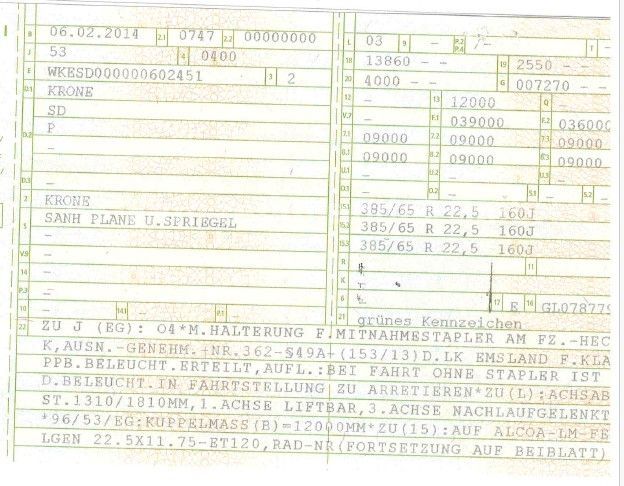 B 06.02.2014 2.1 0747 2.2 00000000
J 53 4 0400
E WKESD000000602451 3 2
D.1 KRONE
SD
D.2 P
-
-
D.3 -
2 KRONE
5 SANH PLANE U.SPRIEGEL
-
V.9 -
14 -
P.3 -
10 - 14.1 - P.1 -
L 03 9 - P.2 P.4 - T -
18 13860 - - 19 2550 - -
20 4000 - - G 007270 - -
12 - 13 12000 Q -
V.7 - F.1 039000 F.2 036000
7.1 09000 7.2 09000 7.3 09000
8.1 09000 8.2 09000 8.3 09000
U.1 - U.3 -
- O.2 - S.1 - S.2 -
15.1 385/65 R 22,5 160J
15.2 385/65 R 22,5 160J
15.3 385/65 R 22,5 160J
R - 11
K -
6 - 17 E 16 GL078779
21 grünes Kennzeichen
22 ZU J (EG): O4*M.HALTERUNG F.MITNAHMESTAPLER AM FZ.-HEC
K,AUSN.-GENEHM.-NR.362-§49A-(153/13)D.LK EMSLAND F.KLA
PPB.BELEUCHT.ERTEILT,AUFL.:BEI FAHRT OHNE STAPLER IST
D.BELEUCHT.IN FAHRTSTELLUNG ZU ARRETIEREN*ZU(L):ACHSAB
ST.1310/1810MM,1.ACHSE LIFTBAR,3.ACHSE NACHLAUFGELENKT
*96/53/EG:KUPPELMASS(B)=12000MM*ZU(15):AUF ALCOA-LM-FE
LGEN 22.5X11.75-ET120,RAD-NR(FORTSETZUNG AUF BEIBLATT)